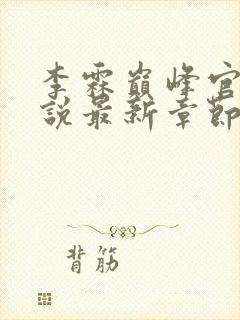 李霖巅峰官
說最新章節
背筋